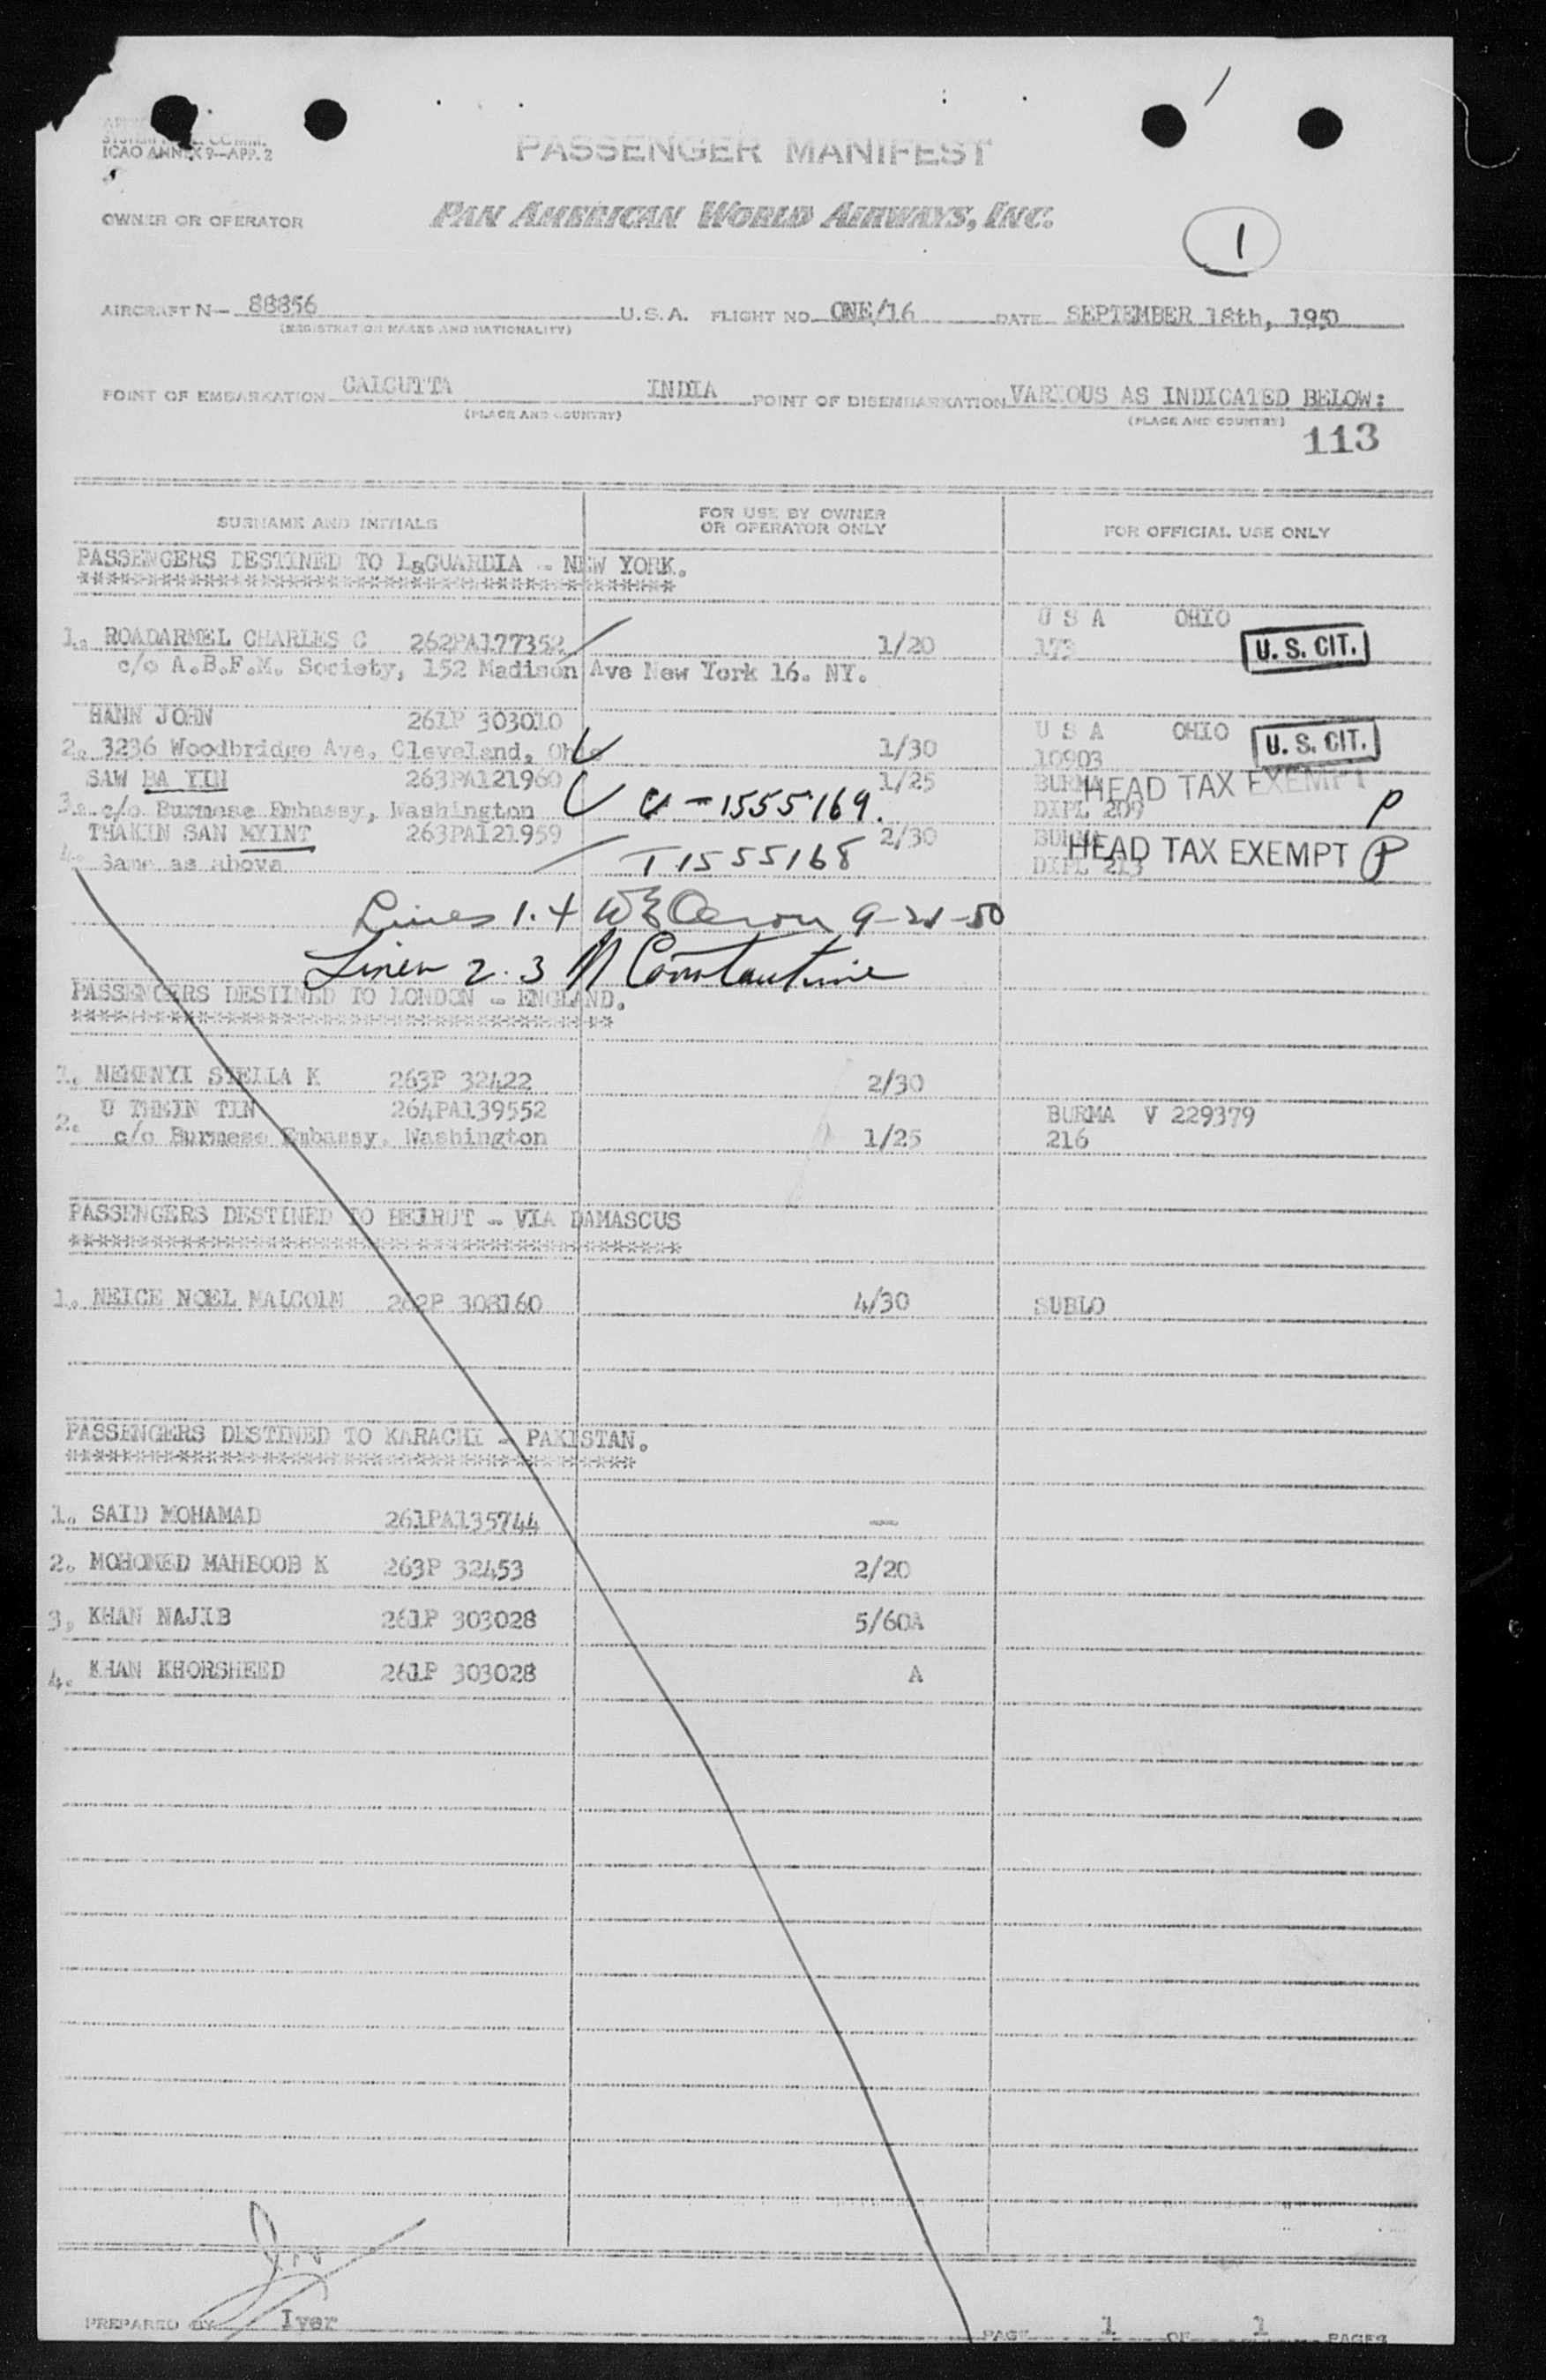 ICAO ANNEX 9—APP. 2
PASSENGER MANIFEST
OWNER OR OPERATOR PAN AMERICAN WORLD AIRWAYS, INC.
1
AIRCRAFT N— 88856 U.S.A. FLIGHT NO. ONE/16 DATE SEPTEMBER 18th, 1950
(REGISTRATION MARKS AND NATIONALITY)
POINT OF EMBARKATION CALCUTTA INDIA POINT OF DISEMBARKATION VARIOUS AS INDICATED BELOW:
(PLACE AND COUNTRY) (PLACE AND COUNTRY)
113
SURNAME AND INITIALS FOR USE BY OWNER OR OPERATOR ONLY FOR OFFICIAL USE ONLY
PASSENGERS DESTINED TO LaGUARDIA - NEW YORK.
******************************************
U S A OHIO
1. ROADARMEL CHARLES C 262PA177352 1/20 173 U. S. CIT.
c/o A.B.F.M. Society, 152 Madison Ave New York 16. NY.
HANN JOHN 261P 303010 U S A OHIO
2. 3236 Woodbridge Ave, Cleveland, Ohio 1/30 10903 U. S. CIT.
SAW BA YIN 263PA121960 1/25 BURMA HEAD TAX EXEMPT
3. c/o Burmese Embassy, Washington -1555169. DIPL 209 P
THAKIN SAN MYINT 263PA121959 2/30 BURMA HEAD TAX EXEMPT P
4. Same as above T 1555168 DIPL 213
Lines 1. 4 9-21-50
Lines 2. 3 N Constantine
PASSENGERS DESTINED TO LONDON - ENGLAND.
**************************************
1. NEMENYI STELLA K 263P 32422 2/30
U THEIN TIN 264PA139552 BURMA V 229379
2. c/o Burmese Embassy, Washington 1/25 216
PASSENGERS DESTINED TO BEIRUT - VIA DAMASCUS
*******************************************
1. NEICE NOEL MALCOLM 262P 308160 4/30 SUBLO
PASSENGERS DESTINED TO KARACHI - PAKISTAN.
****************************************
1. SAID MOHAMAD 261PA135744 —
2. MOHOMED MAHBOOB K 263P 32453 2/20
3. KHAN NAJIB 261P 303028 5/60A
4. KHAN KHORSHEED 261P 303028 A
PREPARED BY Iver PAGE 1 OF 1 PAGES